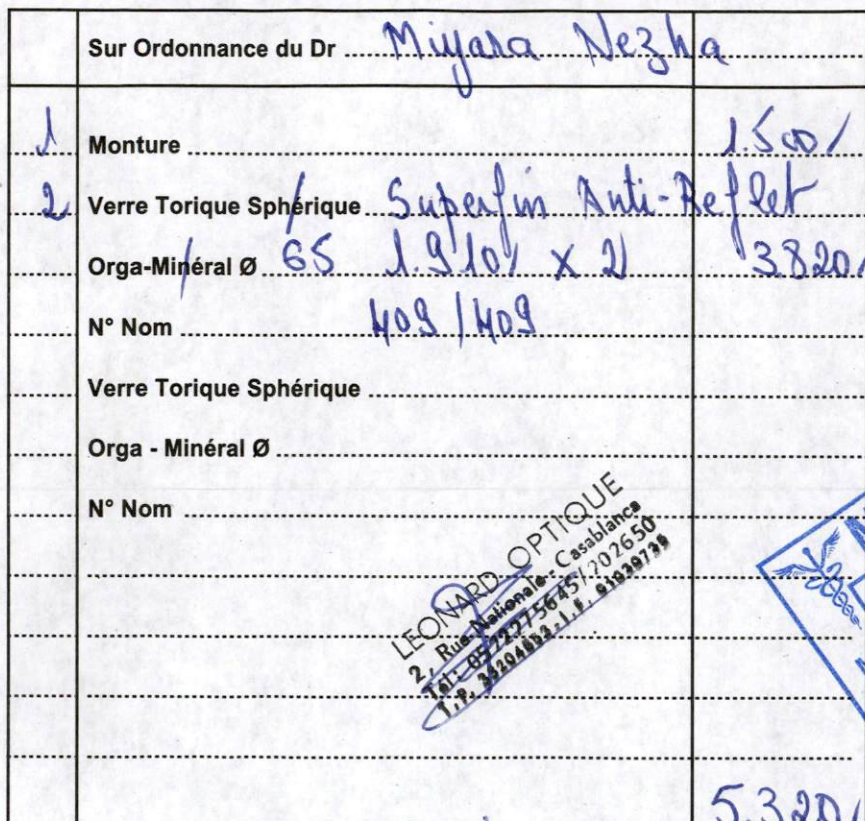 Sur Ordonnance du Dr Miyara Nezha
1 Monture 1.500/
2 Verre Torique Sphérique Superfin Anti-Reflet
Orga-Minéral Ø 65 1.910/ x 2 3.820/
N° Nom 409/409
Verre Torique Sphérique
Orga - Minéral Ø
N° Nom
LEONARD OPTIQUE
2, Rue Nationale - Casablanca
Tél: 0522275645/202650
5.320/